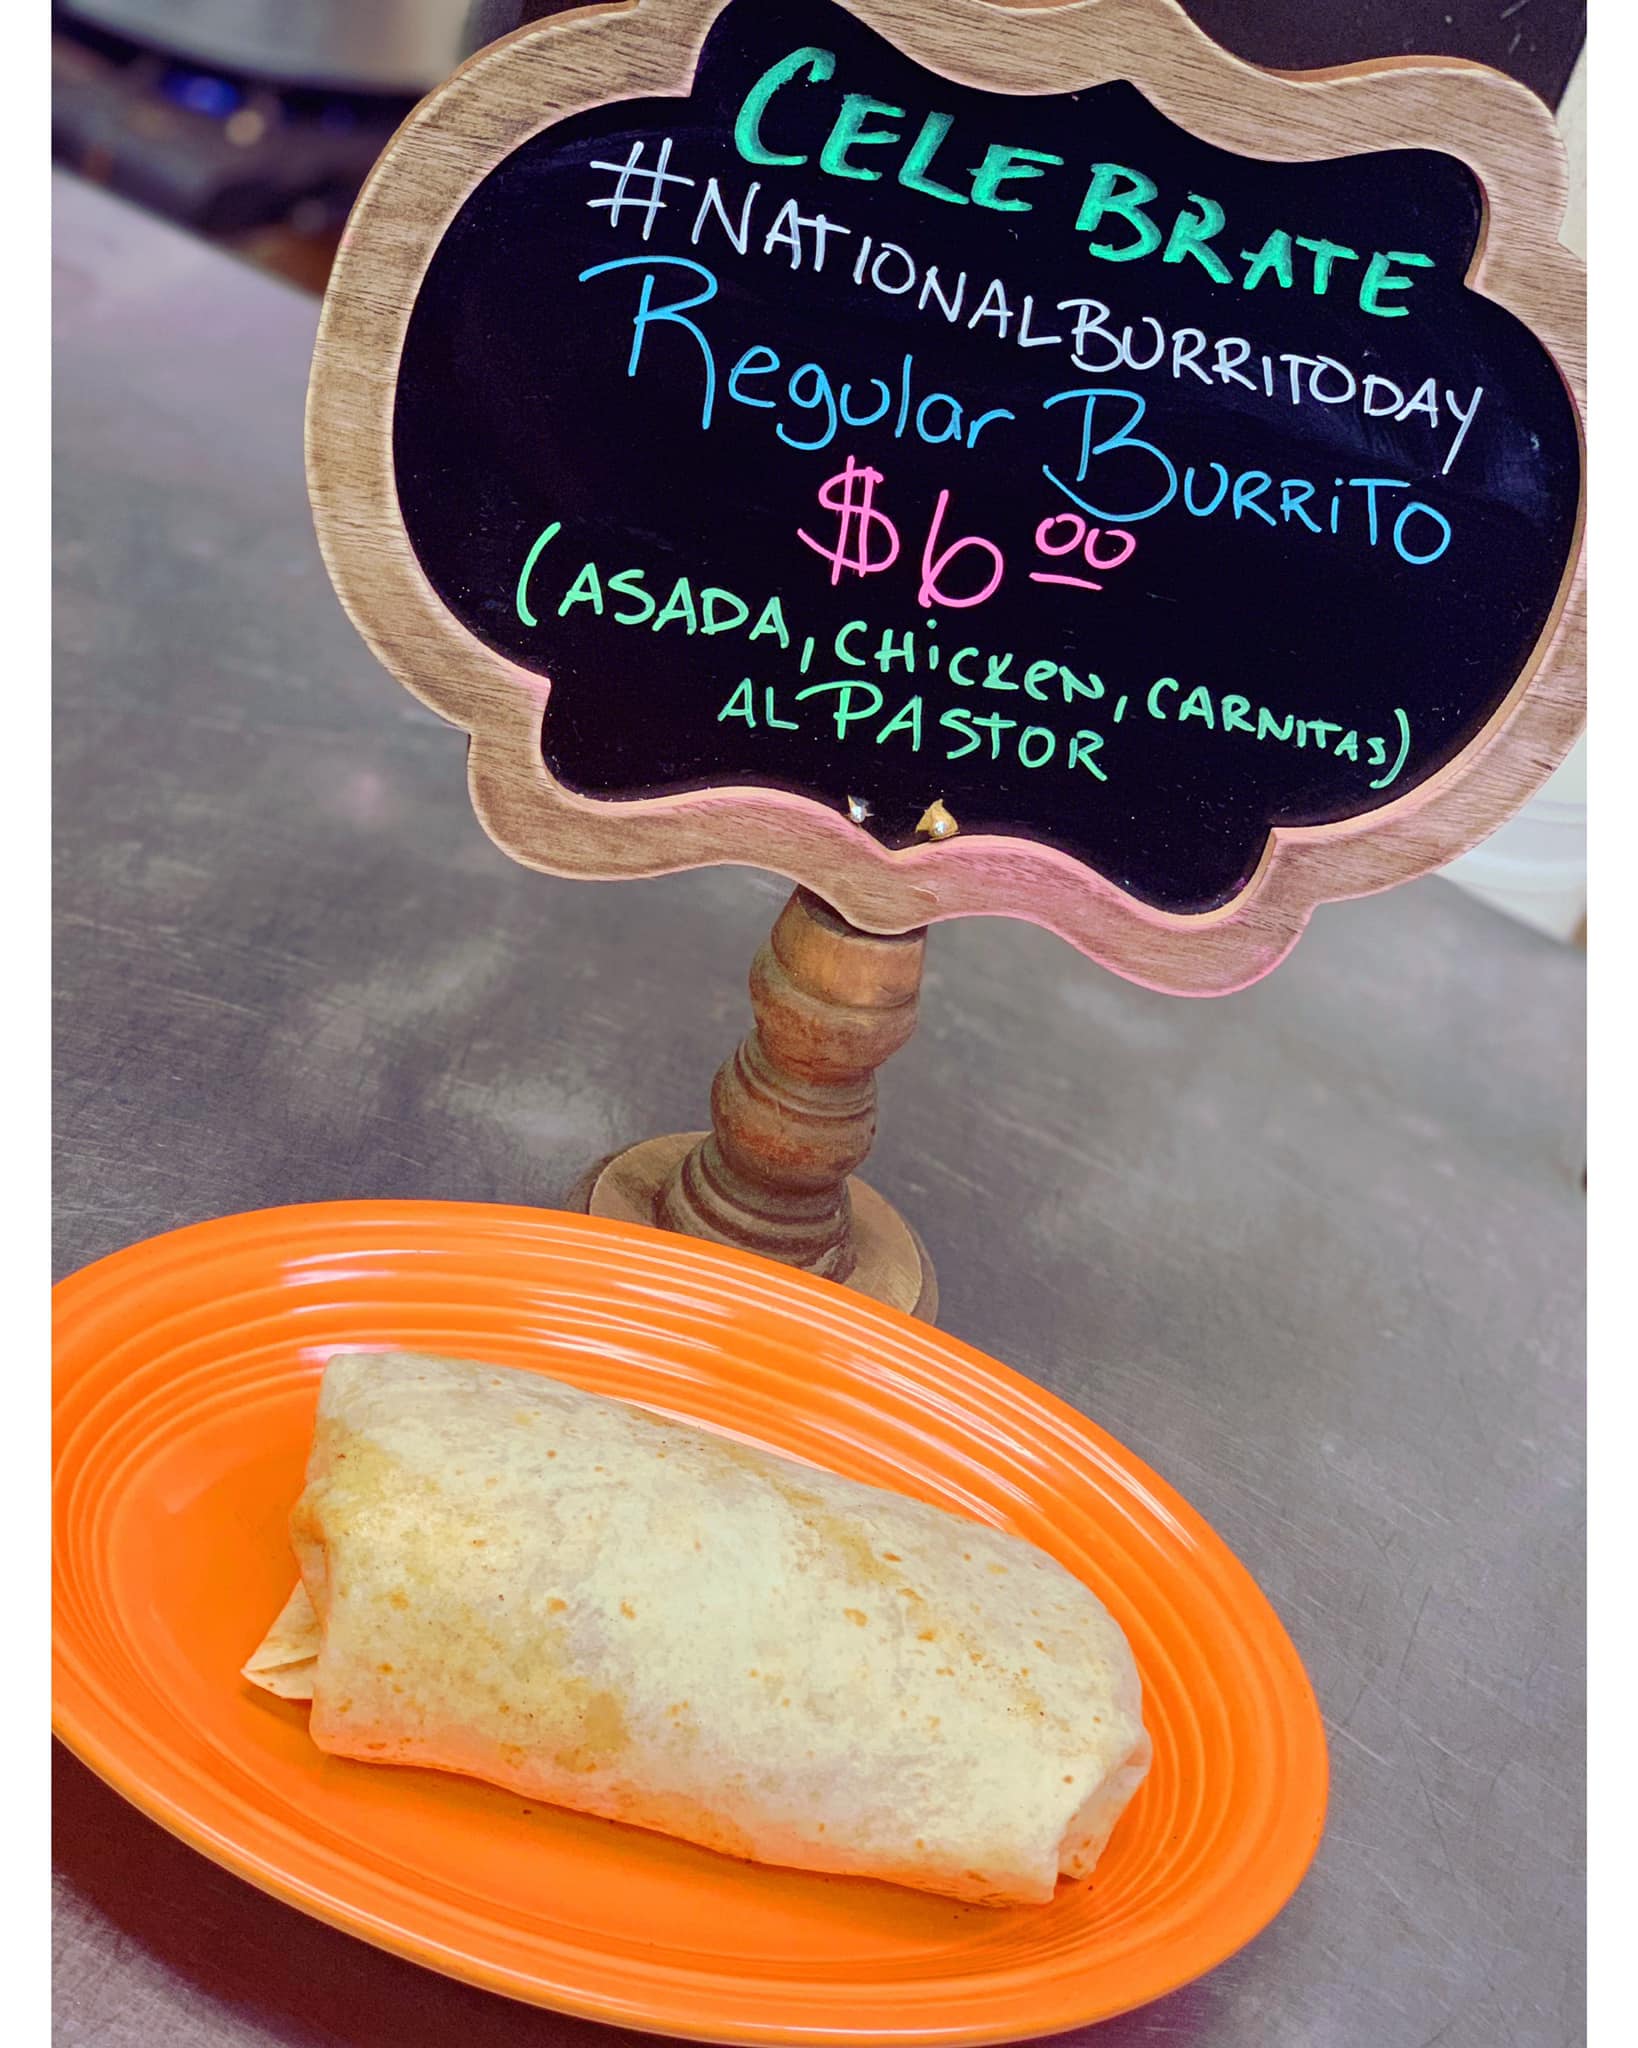 CELEBRATE
#NATIONALBURRITODAY
Regular BURRiTO
$6.00
(ASADA, CHiCKeN, CARNITAS)
AL PASTOR